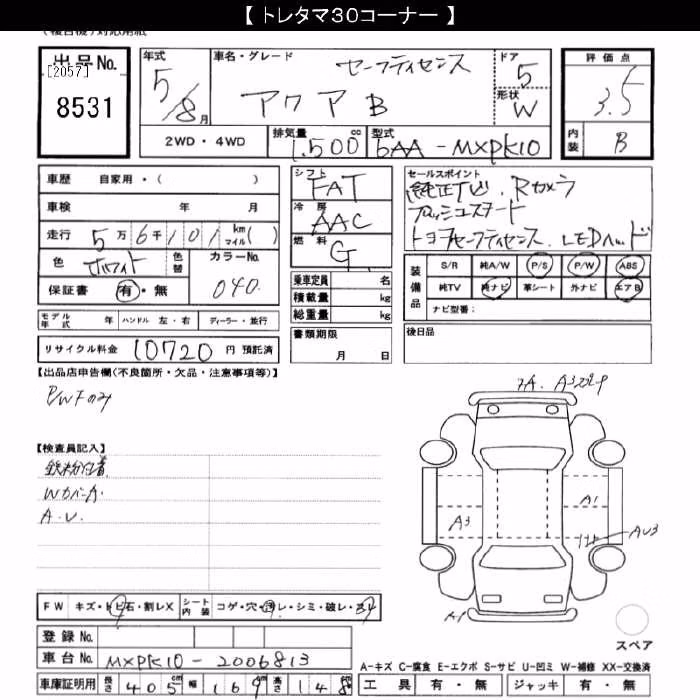 【 トレタマ３０コーナー 】
出品No.
[2057]
8531
年式
5/8月
車名・グレード
セーフティセンス
アクア B
ドア
5
形状
W
2WD・4WD
排気量
1.500 cc
型式
6AA-MXPK10
評価点
3.5
内装
B
車歴 自家用・( )
車検 年 月
走行 5万6千101 km マイル( )
色 ホワイト 色替 カラーNo.
040
保証書 有・無
モデル年式 年 ハンドル 左・右 ディーラー・並行
リサイクル料金 10720 円 預託済
シフト
FAT
冷房
AAC
燃料
G
乗車定員 名
積載量 kg
総重量 kg
書類期限
月 日
セールスポイント
純正ナビ. Rカメラ
プッシュスタート
トヨタセーフティセンス. LEDヘッド
装備品
S/R 純A/W P/S P/W ABS
純TV 純ナビ 革シート 外ナビ エアB
ナビ型番：
後日品
【出品店申告欄(不良箇所・欠品・注意事項等)】
P/WFのみ
【検査員記入】
鉄粉付着
Wカバーキズ
A.U.
7A. A3
A1
A3
AU3
A1
スペア
FW キズ・トビ石・割レX シート内装 コゲ・穴・汚レ・シミ・破レ・スレ
登録 No.
車台 No. MXPK10-2006813
車庫証明用 長さ 405 cm 幅 169 高さ 148
A-キズ C-腐食 E-エクボ S-サビ U-凹ミ W-補修 XX-交換済
工具 有・無 ジャッキ 有・無